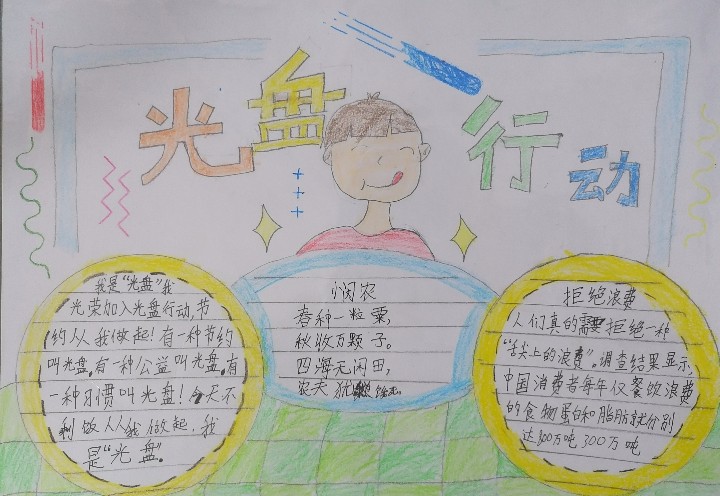 光盘行动
我是“光盘”我
光荣加入光盘行动,节
约从我做起!有一种节约
叫光盘,有一种公益叫光盘,有
一种习惯叫光盘!今天不
剩饭从我做起,我
是“光盘”。
悯农
春种一粒粟,
秋收万颗子。
四海无闲田,
农夫犹
拒绝浪费
人们真的需要拒绝一种
“舌尖上的浪费”。调查结果显示,
中国消费者每年仅餐饮浪费
的食物蛋白和脂肪就分别
达800万吨300万吨